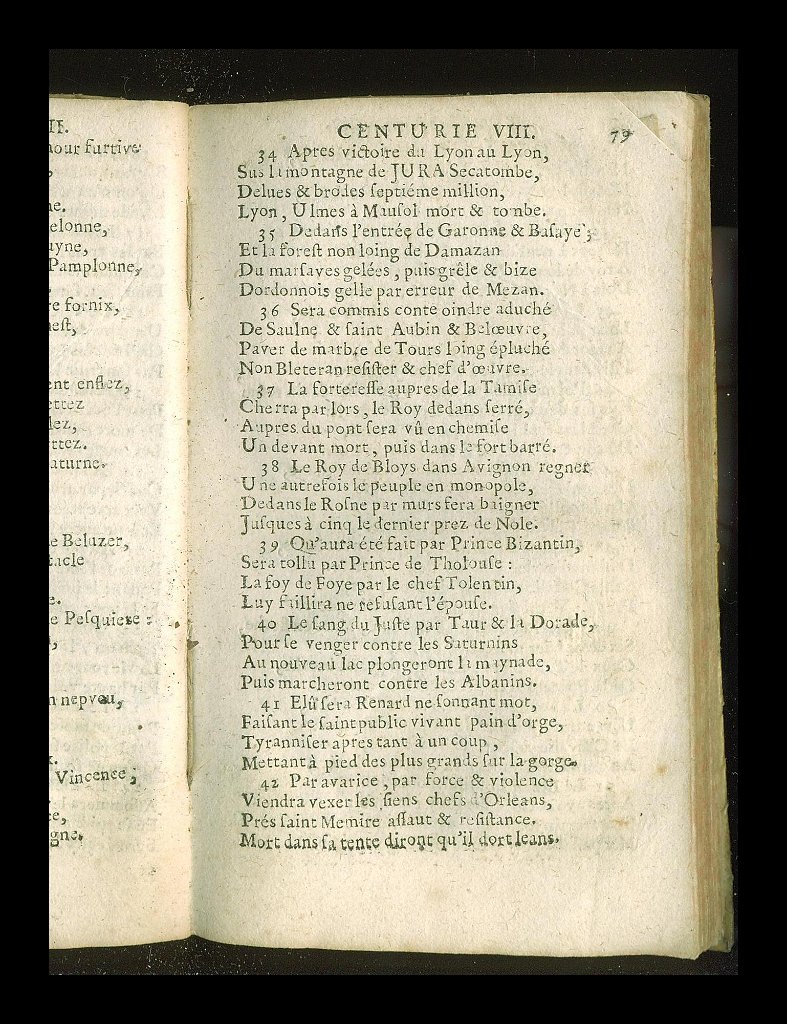 II.
our furtive
,
ne.
elonne,
uyne,
Pamplonne,
e fornix,
eſt,
ent enflez,
ettez
lez,
ttez.
aturne.
e Beluzer,
tacle
e.
e Peſquiere :
n nepveu,
Vincence ;
e,
gne.
CENTURIE VIII. 79
34 Apres victoire du Lyon au Lyon,
Sus la montagne de JURA Secatombe,
Delues & brodes ſeptiéme million,
Lyon, Ulmes à Mauſol mort & tombe.
35 Dedans l'entrée de Garonne & Baſaye ;
Et la foreſt non loing de Damazan
Du marſaves gelées, puis grêle & bize
Dordonnois gelle par erreur de Mezan.
36 Sera commis conte oindre aduché
De Saulne & ſaint Aubin & Belœuvre,
Paver de marbre de Tours loing épluché
Non Bleteran reſiſter & chef d'œuvre.
37 La fortereſſe aupres de la Tamiſe
Cherra par lors, le Roy dedans ſerré,
Aupres du pont ſera vû en chemiſe
Un devant mort, puis dans le fort barré.
38 Le Roy de Bloys dans Avignon regner
Une autrefois le peuple en monopole,
Dedans le Roſne par murs fera baigner
Juſques à cinq le dernier prez de Nole.
39 Qu'aura été fait par Prince Bizantin,
Sera tollu par Prince de Tholouſe :
La foy de Foye par le chef Tolentin,
Luy faillira ne refuſant l'épouſe.
40 Le ſang du Juſte par Taur & la Dorade,
Pour ſe venger contre les Saturnins
Au nouveau lac plongeront la maynade,
Puis marcheront contre les Albanins.
41 Elû ſera Renard ne ſonnant mot,
Faiſant le ſaint public vivant pain d'orge,
Tyranniſer apres tant à un coup,
Mettant à pied des plus grands ſur la gorge.
42 Par avarice, par force & violence
Viendra vexer les ſiens chefs d'Orleans,
Prés ſaint Memire aſſaut & reſiſtance.
Mort dans ſa tente diront qu'il dort leans.